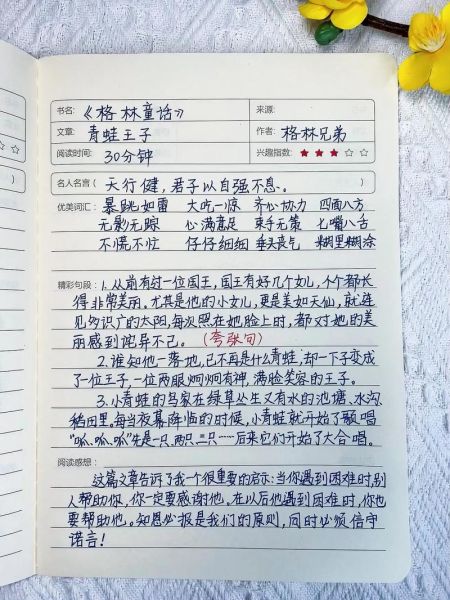 书名: 《格林童话》
来源:
文章: 青蛙王子
作者: 格林兄弟
阅读时间: 30分钟
兴趣指数: ★★★☆☆
名人名言 ( 天行健，君子以自强不息。 )
优美词汇: 暴跳如雷 大吃一惊 齐心协力 四面八方
无影无踪 心满意足 束手无策 七嘴八舌
不慌不忙 仔仔细细 垂头丧气 糊里糊涂
精彩句段: 1.从前有过一位国王，国王有好几个女儿，个个都长
得非常美丽。尤其是他的小女儿，更是美如天仙，就连
见多识广的太阳，每次照在她脸上时，都对她的美
丽感到诧异不己。(夸张句)
2.谁知他一落地，已不再是什么青蛙，却一下子变成
了一位王子，一位两眼炯炯有神，满脸笑容的王子。
3.小青蛙的家在绿草丛生又有水的池塘，水沟
稻田里，每当夜幕降临的时候，小青蛙就开始了歌唱
"呱、呱、呱"先是一只、两只、三只……后来它们开始了大合唱。
阅读感想:
这篇文章告诉了我一个很重要的启示：当你遇到困难时，别
人帮助你，你一定要感谢他。在以后他遇到困难时，你也
要帮助他。知恩必报是我们的原则，同时必须信守
诺言！